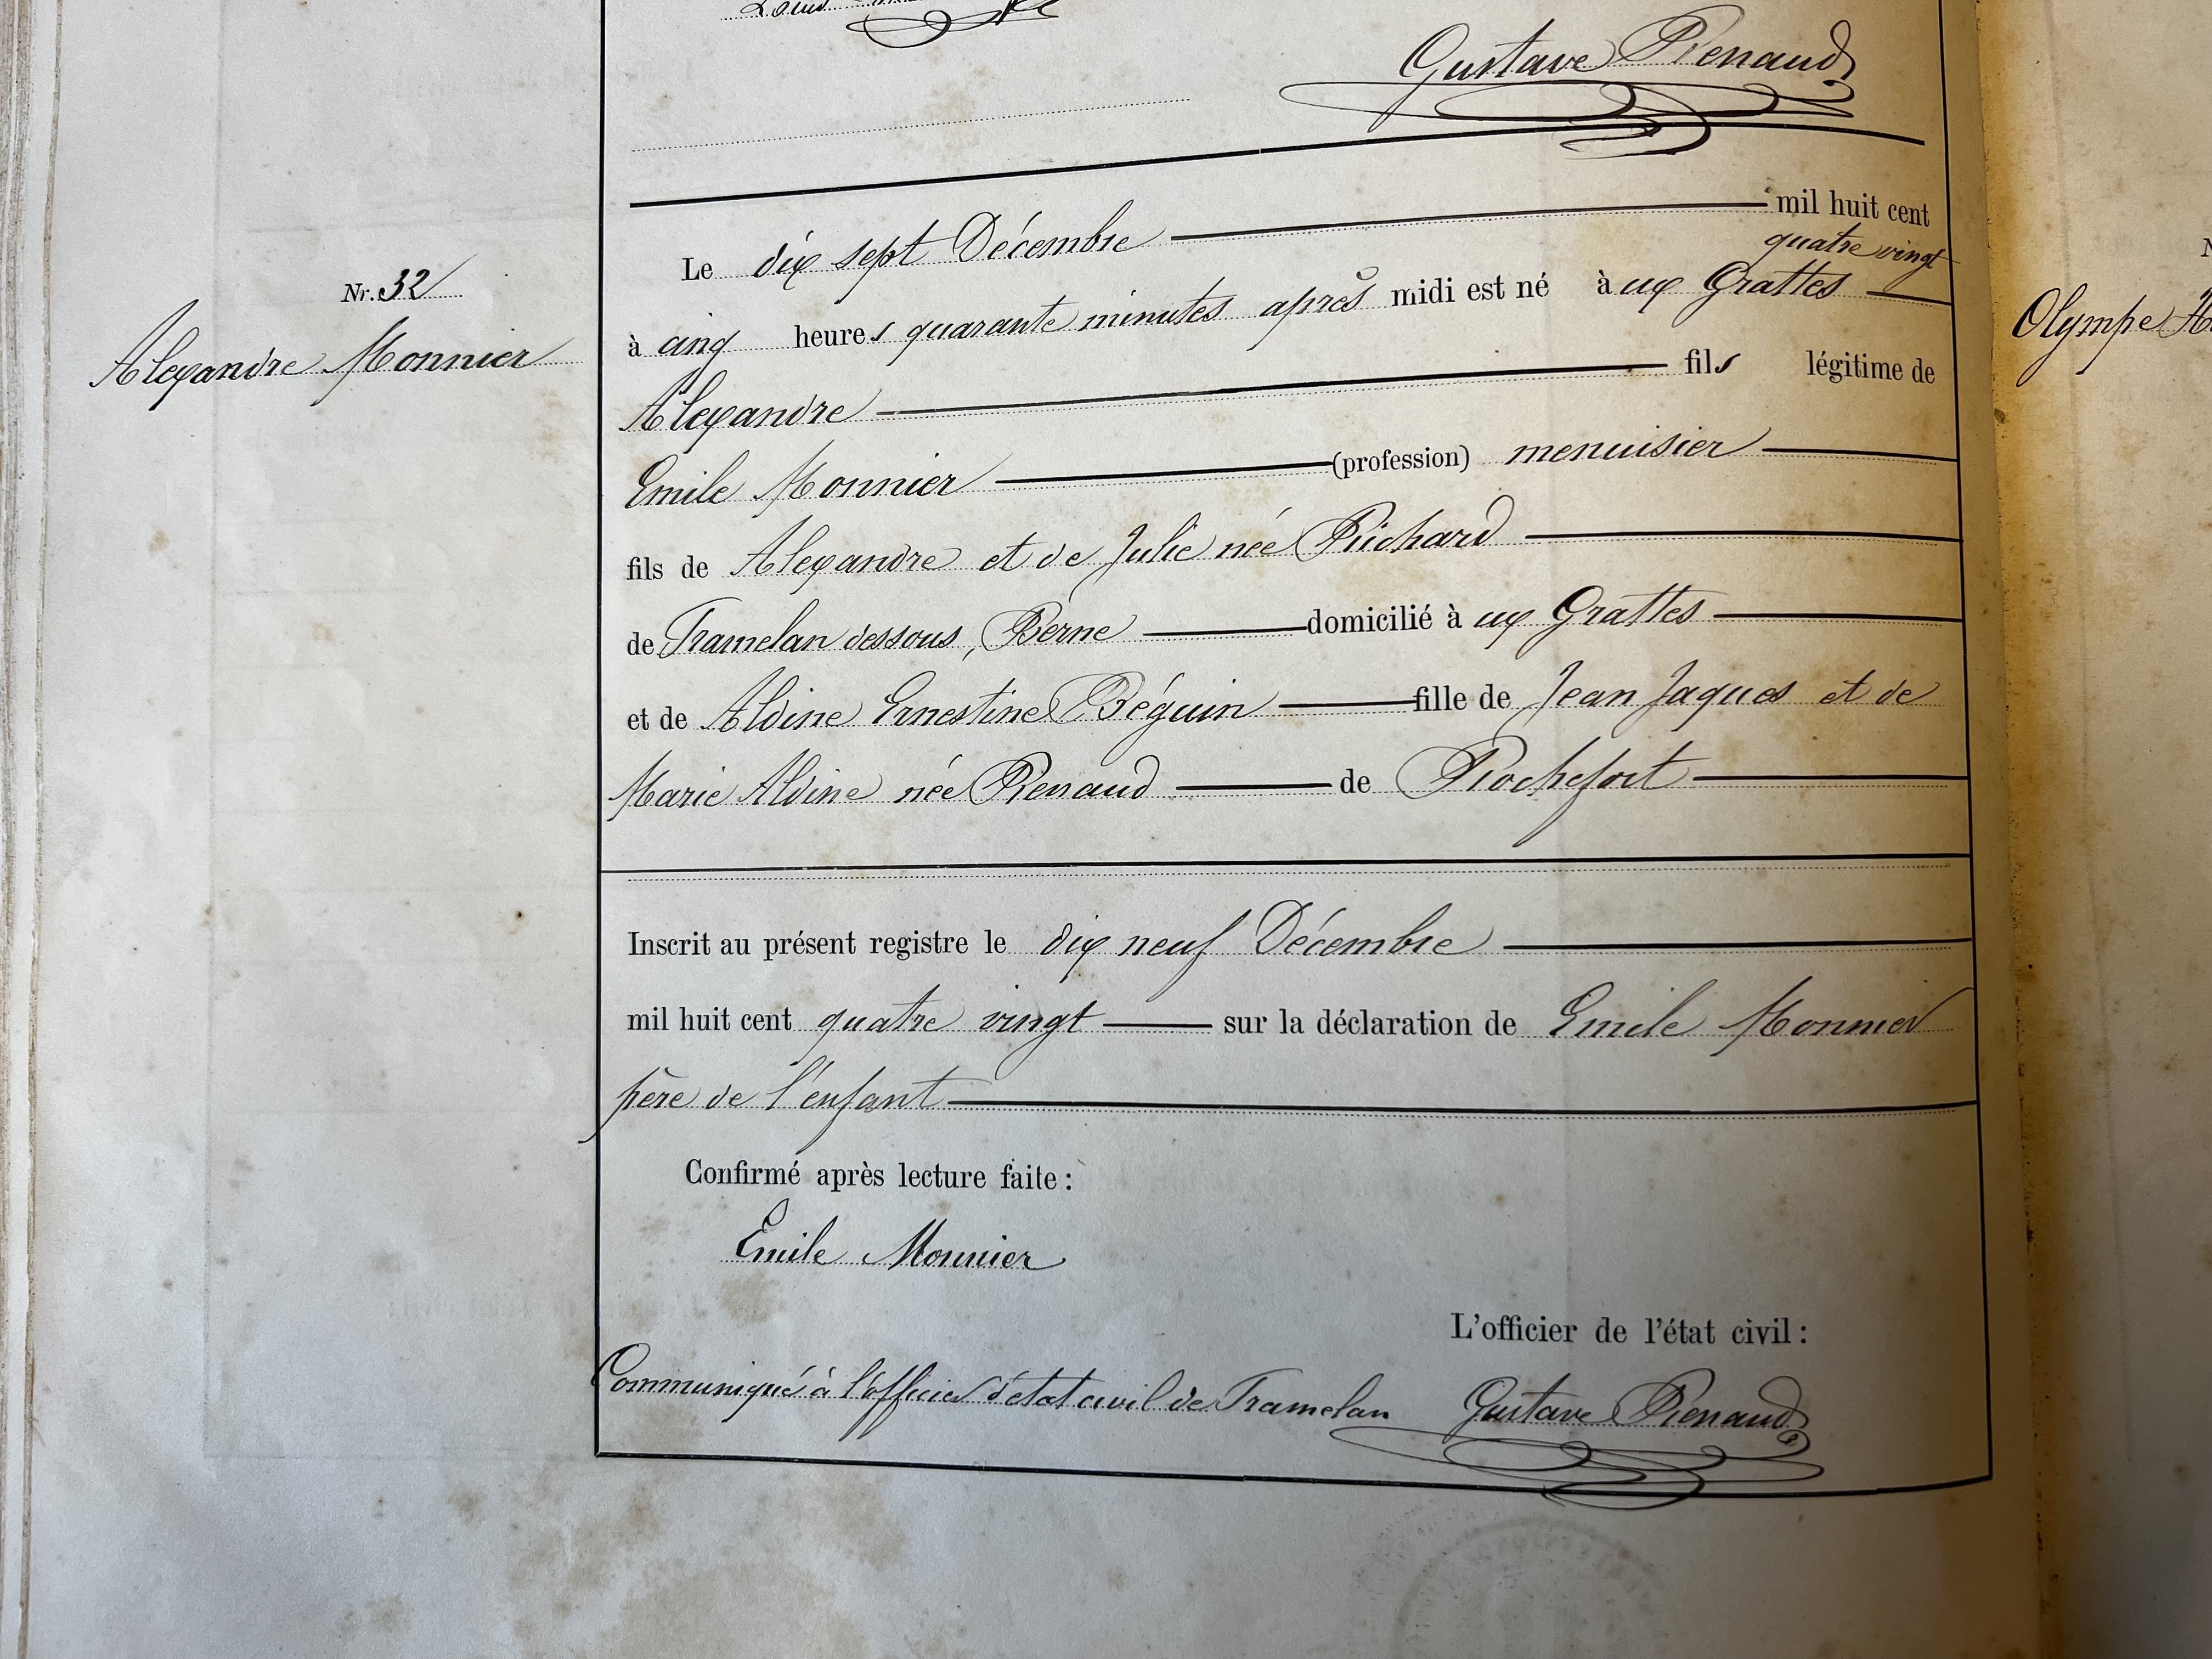 Louis
Gustave Renaud
Nr. 32
Alexandre Monnier
Le dix sept Décembre mil huit cent
quatre vingt
à cinq heures quarante minutes après midi est né à ux Grattes
Alexandre fils légitime de
Emile Monnier (profession) menuisier
fils de Alexandre et de Julie née Richard
de Tramelan dessous, Berne domicilié à ux Grattes
et de Aldine Ernestine Béguin fille de Jean Jaques et de
Marie Aldine née Renaud de Rochefort
Inscrit au présent registre le dix neuf Décembre
mil huit cent quatre vingt sur la déclaration de Emile Monnier
père de l'enfant
Confirmé après lecture faite :
Emile Monnier
L'officier de l'état civil :
Communiqué à l'officier d'état civil de Tramelan Gustave Renaud
Olympe